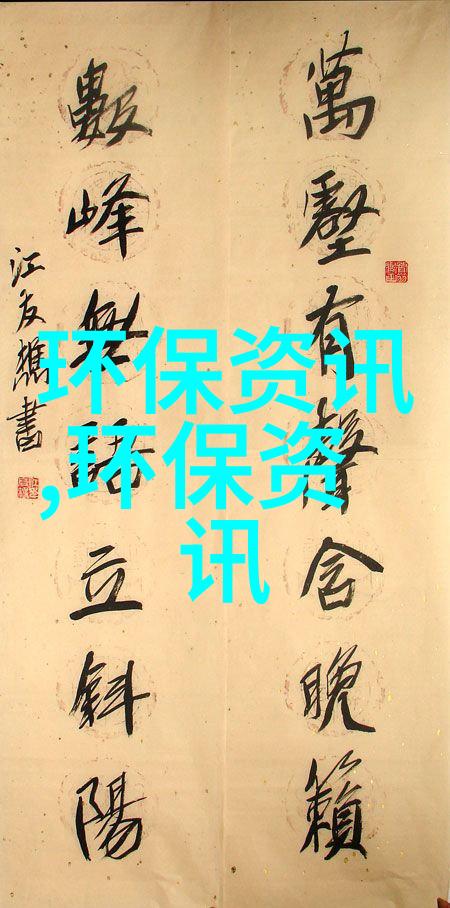 萬壑有聲含晚籟
數峰無語立斜陽
江友樵書
环保资讯
,环保资
讯